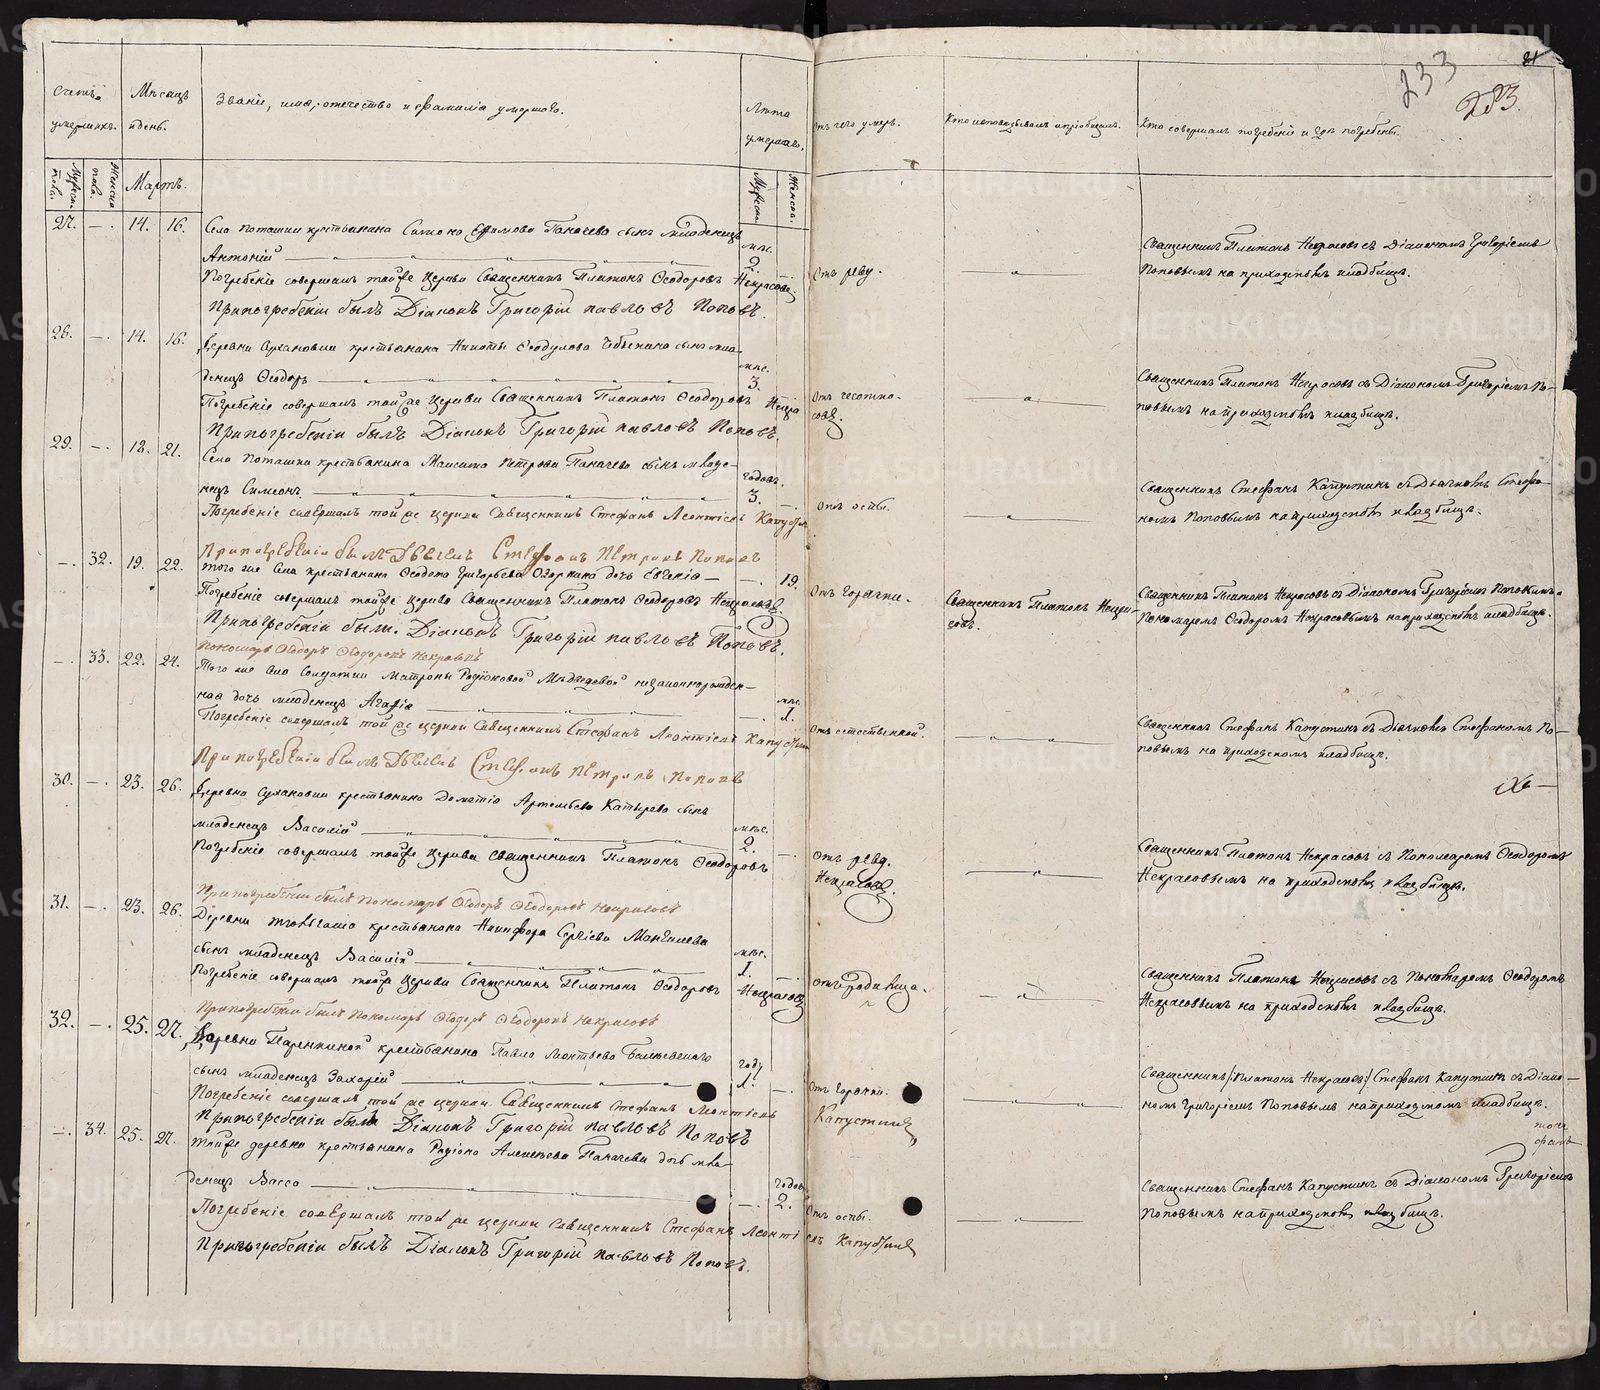 81
233
283.
Счетъ умершихъ.
Мѣсяцъ и день.
Званіе, имя, отечество и фамилія умершаго.
Лѣта умершаго.
Отъ чего умеръ.
Кто исповѣдывалъ и пріобщалъ.
Кто совершалъ погребеніе и гдѣ погребены.
Мужеска пола.
Женска пола.
Мартъ.
Мужеска.
Женска.
27. — 14. 16. Села Поташки крестьянина Самсона Ефимова Паначева сынъ младенецъ
Антоній мѣс. 2
Отъ реву.
Священникъ Платонъ Некрасовъ съ Діакономъ Григоріемъ
Поповымъ на приходскомъ кладбищѣ.
Погребеніе совершалъ тойже Церкви Священникъ Платонъ Ѳеодоровъ Некрасовъ
При погребеніи былъ Діаконъ Григорій Павловъ Поповъ.
28. — 14. 16. Деревни Сухановки крестьянина Никиты Ѳеодулова сынъ мла-
денецъ Ѳеодоръ мѣс. 3.
Священникъ Платонъ Некрасовъ съ Діакономъ Григоріемъ По-
повымъ на приходскомъ кладбищѣ.
Погребеніе совершалъ тойже Церкви Священникъ Платонъ Ѳеодоровъ Некра
совъ
При погребеніи былъ Діаконъ Григорій Павловъ Поповъ.
29. — 18. 21. Села Поташки крестьянина Максима Петрова Паначева сынъ младе-
нецъ Симеонъ. годовъ. 3.
Отъ оспы.
Священникъ Стефанъ Капустинъ съ Дьячкомъ Стефа-
номъ Поповымъ на приходскомъ кладбищѣ.
Погребеніе совершалъ той же церкви Священникъ Стефанъ Леонтіевъ Капустин
При погребеніи былъ Дьячекъ Стефанъ Петровъ Поповъ
— 32. 19. 22. Того же Села крестьянина Ѳеодота Григорьева дочь Евгенія — 19.
Отъ горячки.
Священникъ Платонъ Некра-
совъ.
Священникъ Платонъ Некрасовъ съ Діакономъ Григоріемъ Поповымъ
Пономаремъ Ѳеодоромъ Некрасовымъ на приходскомъ кладбищѣ.
Погребеніе совершалъ тойже церкви Священникъ Платонъ Ѳеодоровъ Некрасовъ
При погребеніи были. Діаконъ Григорій Павловъ Поповъ.
Пономарь Ѳеодоръ Ѳеодоровъ Некрасовъ
— 33. 22. 24. Того же Села Солдатки Матроны Родіоновой Медведевой незаконнорожден-
ная дочь младенецъ Агафія мѣс. 1.
Отъ естественной.
Священникъ Стефанъ Капустинъ съ Дьячкомъ Стефаномъ По-
повымъ на приходскомъ кладбищѣ.
Погребеніе совершалъ той же церкви Священникъ Стефанъ Леонтіевъ Капустин
При погребеніи былъ Дьячекъ Стефанъ Петровъ Поповъ
30. — 23. 26. Деревни Сухановки крестьянина Дометіа Артемьева Катырева сынъ
младенецъ Василій мѣс. 2.
Отъ реву.
Священникъ Платонъ Некрасовъ съ Пономаремъ Ѳеодоромъ
Некрасовымъ на приходскомъ кладбищѣ.
Погребеніе совершалъ тойже Церкви Священникъ Платонъ Ѳеодоровъ
Некрасовъ.
При погребеніи былъ Пономарь Ѳеодоръ Ѳеодоровъ Некрасовъ
31. — 23. 26. Деревни крестьянина Никифора Сергіева
сынъ младенецъ Василій мѣс. 1.
Отъ родимца.
Священникъ Платонъ Некрасовъ съ Пономаремъ Ѳеодоромъ
Некрасовымъ на приходскомъ кладбищѣ.
Погребеніе совершалъ тойже Церкви Священникъ Платонъ Ѳеодоровъ Некрасовъ
При погребеніи былъ Пономарь Ѳеодоръ Ѳеодоровъ Некрасовъ
32. — 25. 27. Деревни крестьянина Павла Леонтьева
сынъ младенецъ Захарій году 1.
Отъ горячки.
Священникъ /:Платонъ Некрасовъ:/ Стефанъ Капустинъ съ Діако-
номъ Григоріемъ Поповымъ на приходскомъ кладбищѣ.
Погребеніе совершалъ той же церкви Священникъ Стефанъ Леонтіевъ
Капустинъ
При погребеніи былъ Діаконъ Григорій Павловъ Поповъ
— 34. 25. 27. Тойже деревни крестьянина Родіона Алексѣева Паначева дочь мла-
денецъ Васса годовъ 2.
Отъ оспы.
Священникъ Стефанъ Капустинъ съ Діакономъ Григоріемъ
Поповымъ на приходскомъ кладбищѣ.
Погребеніе совершалъ той же церкви Священникъ Стефанъ Леонтіевъ Капустинъ
При погребеніи былъ Діаконъ Григорій Павловъ Поповъ.
METRIKI.GASO-URAL.RU